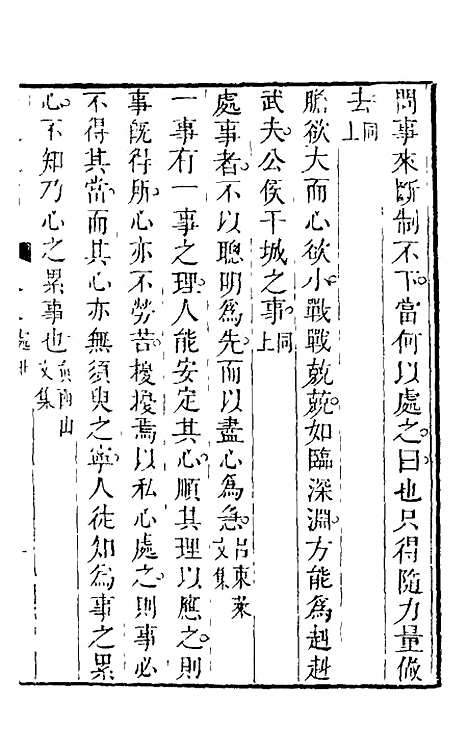 問事來斷制不下當何以處之曰也只得隨力量做
去同上
膽欲大而心欲小戰戰兢兢如臨深淵方能為赳赳
武夫公侯干城之事同上
處事者不以聰明為先而以盡心為急呂東萊文集
一事有一事之理人能安定其心順其理以應之則
事既得所心亦不勞苦擾擾焉以私心處之則事必
不得其當而其心亦無須臾之寧人徒知為事之累
心不知乃心之累事也真西山文集